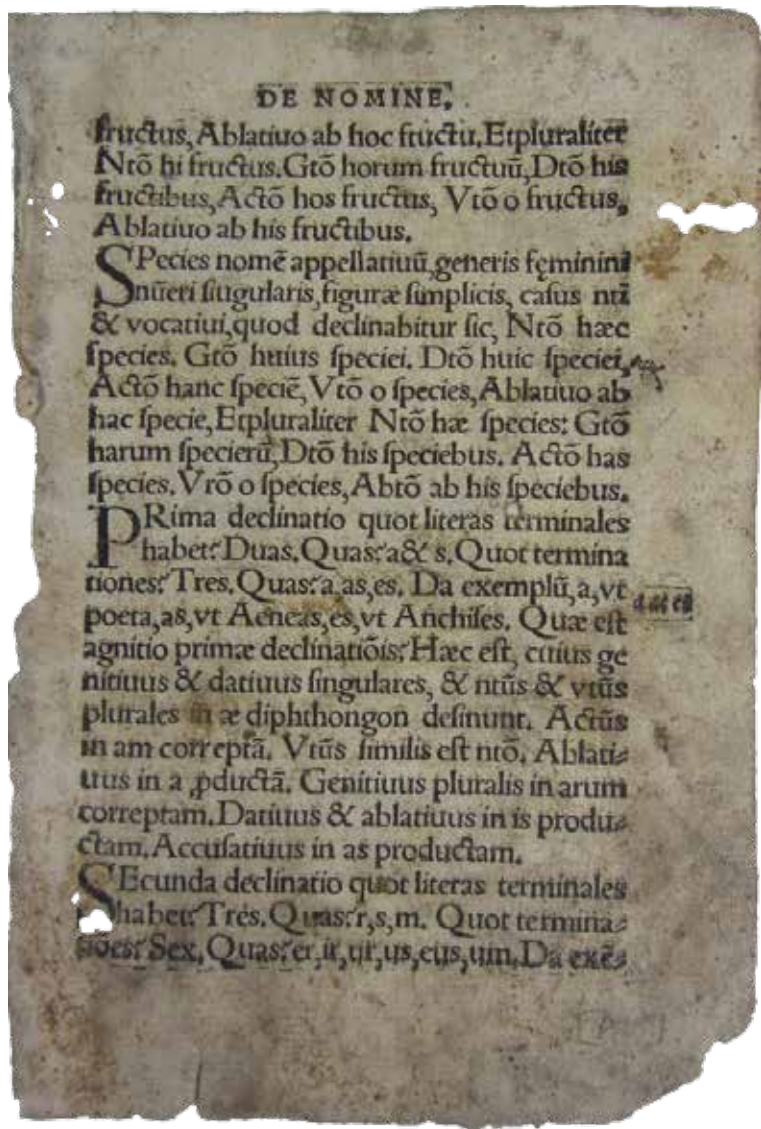 DE NOMINE.
fructus, Ablatiuo ab hoc fructu. Etpluraliter
Ntõ hi fructus. Gtõ horum fructuũ, Dtõ his
fructibus, Actõ hos fructus, Vtõ o fructus,
Ablatiuo ab his fructibus.
SPecies nomẽ appellatiuũ, generis fęminini
nũeri singularis, figuræ simplicis, casus ntĩ
& vocatiui, quod declinabitur sic, Ntõ hæc
species. Gtõ huius speciei. Dtõ huic speciei,
Actõ hanc speciẽ, Vtõ o species, Ablatiuo ab
hac specie, Etpluraliter Ntõ hæ species: Gtõ
harum specierũ, Dtõ his speciebus. Actõ has
species. Vtõ o species, Abtõ ab his speciebus.
PRima declinatio quot literas terminales
habet? Duas. Quas? a & s. Quot termina
tiones? Tres. Quas? a, as, es. Da exemplũ, a, vt
poeta, as, vt Aeneas, es, vt Anchises. Quæ est
agnitio primæ declinatiõis? Hæc est, cuius ge
nitiuus & datiuus singulares, & ntũs & vtũs
plurales in æ diphthongon desinunt. Actũs
in am correptã. Vtũs similis est ntõ. Ablati⸗
uus in a ꝓductã. Genitiuus pluralis in arum
correptam. Datiuus & ablatiuus in is produ⸗
ctam. Accusatiuus in as productam.
SEcunda declinatio quot literas terminales
habet? Tres. Quas? r, s, m. Quot termina⸗
tiões? Sex. Quas? er, ir, ur, us, eus, um. Da exẽ⸗